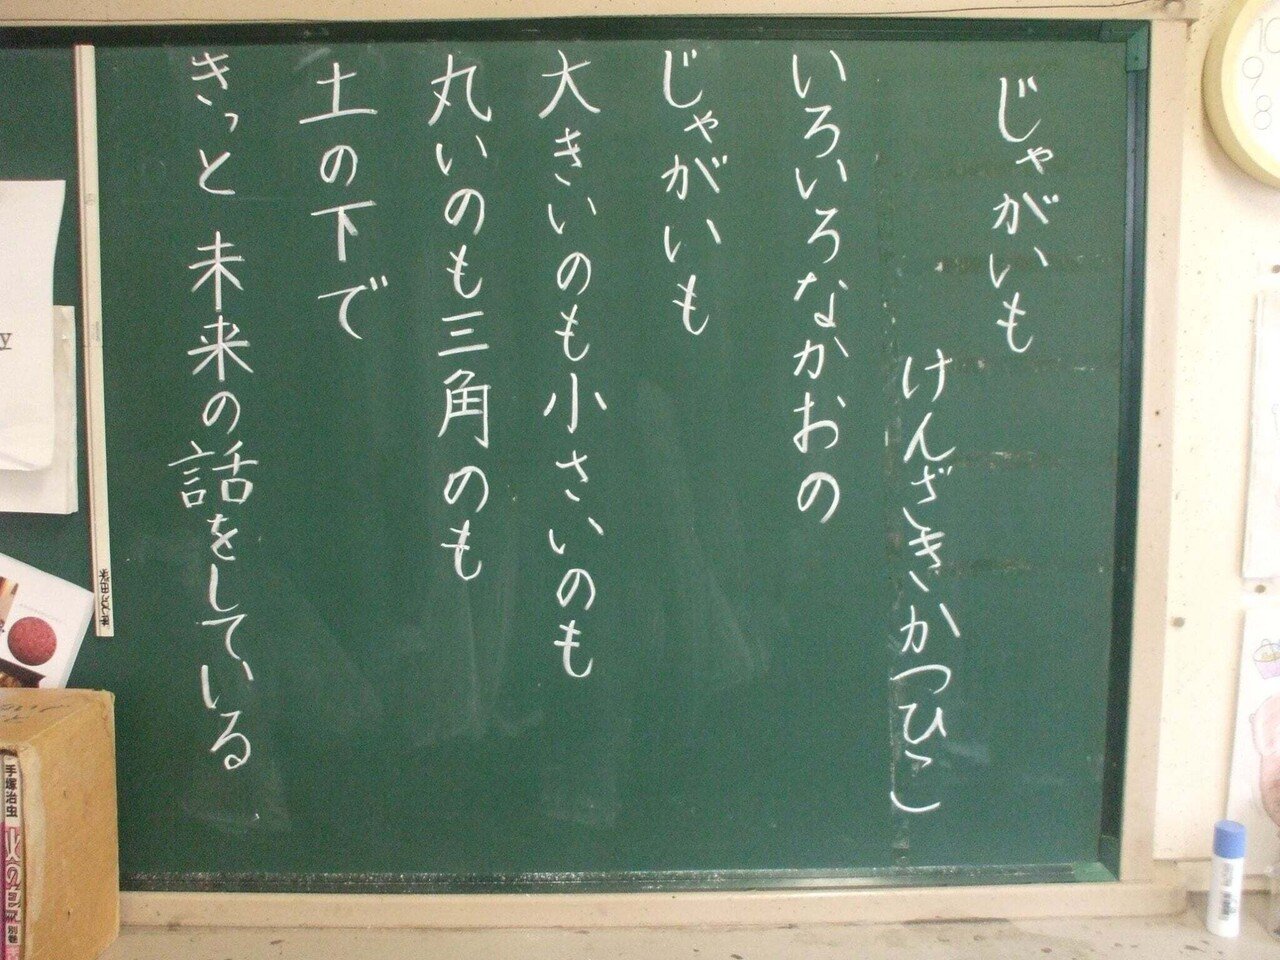 じゃがいも
けんざきかつひこ
いろいろなかおの
じゃがいも
大きいのも小さいのも
丸いのも三角のも
土の下で
きっと 未来の話をしている
手塚治虫
火の鳥
別巻
y
10
9
8